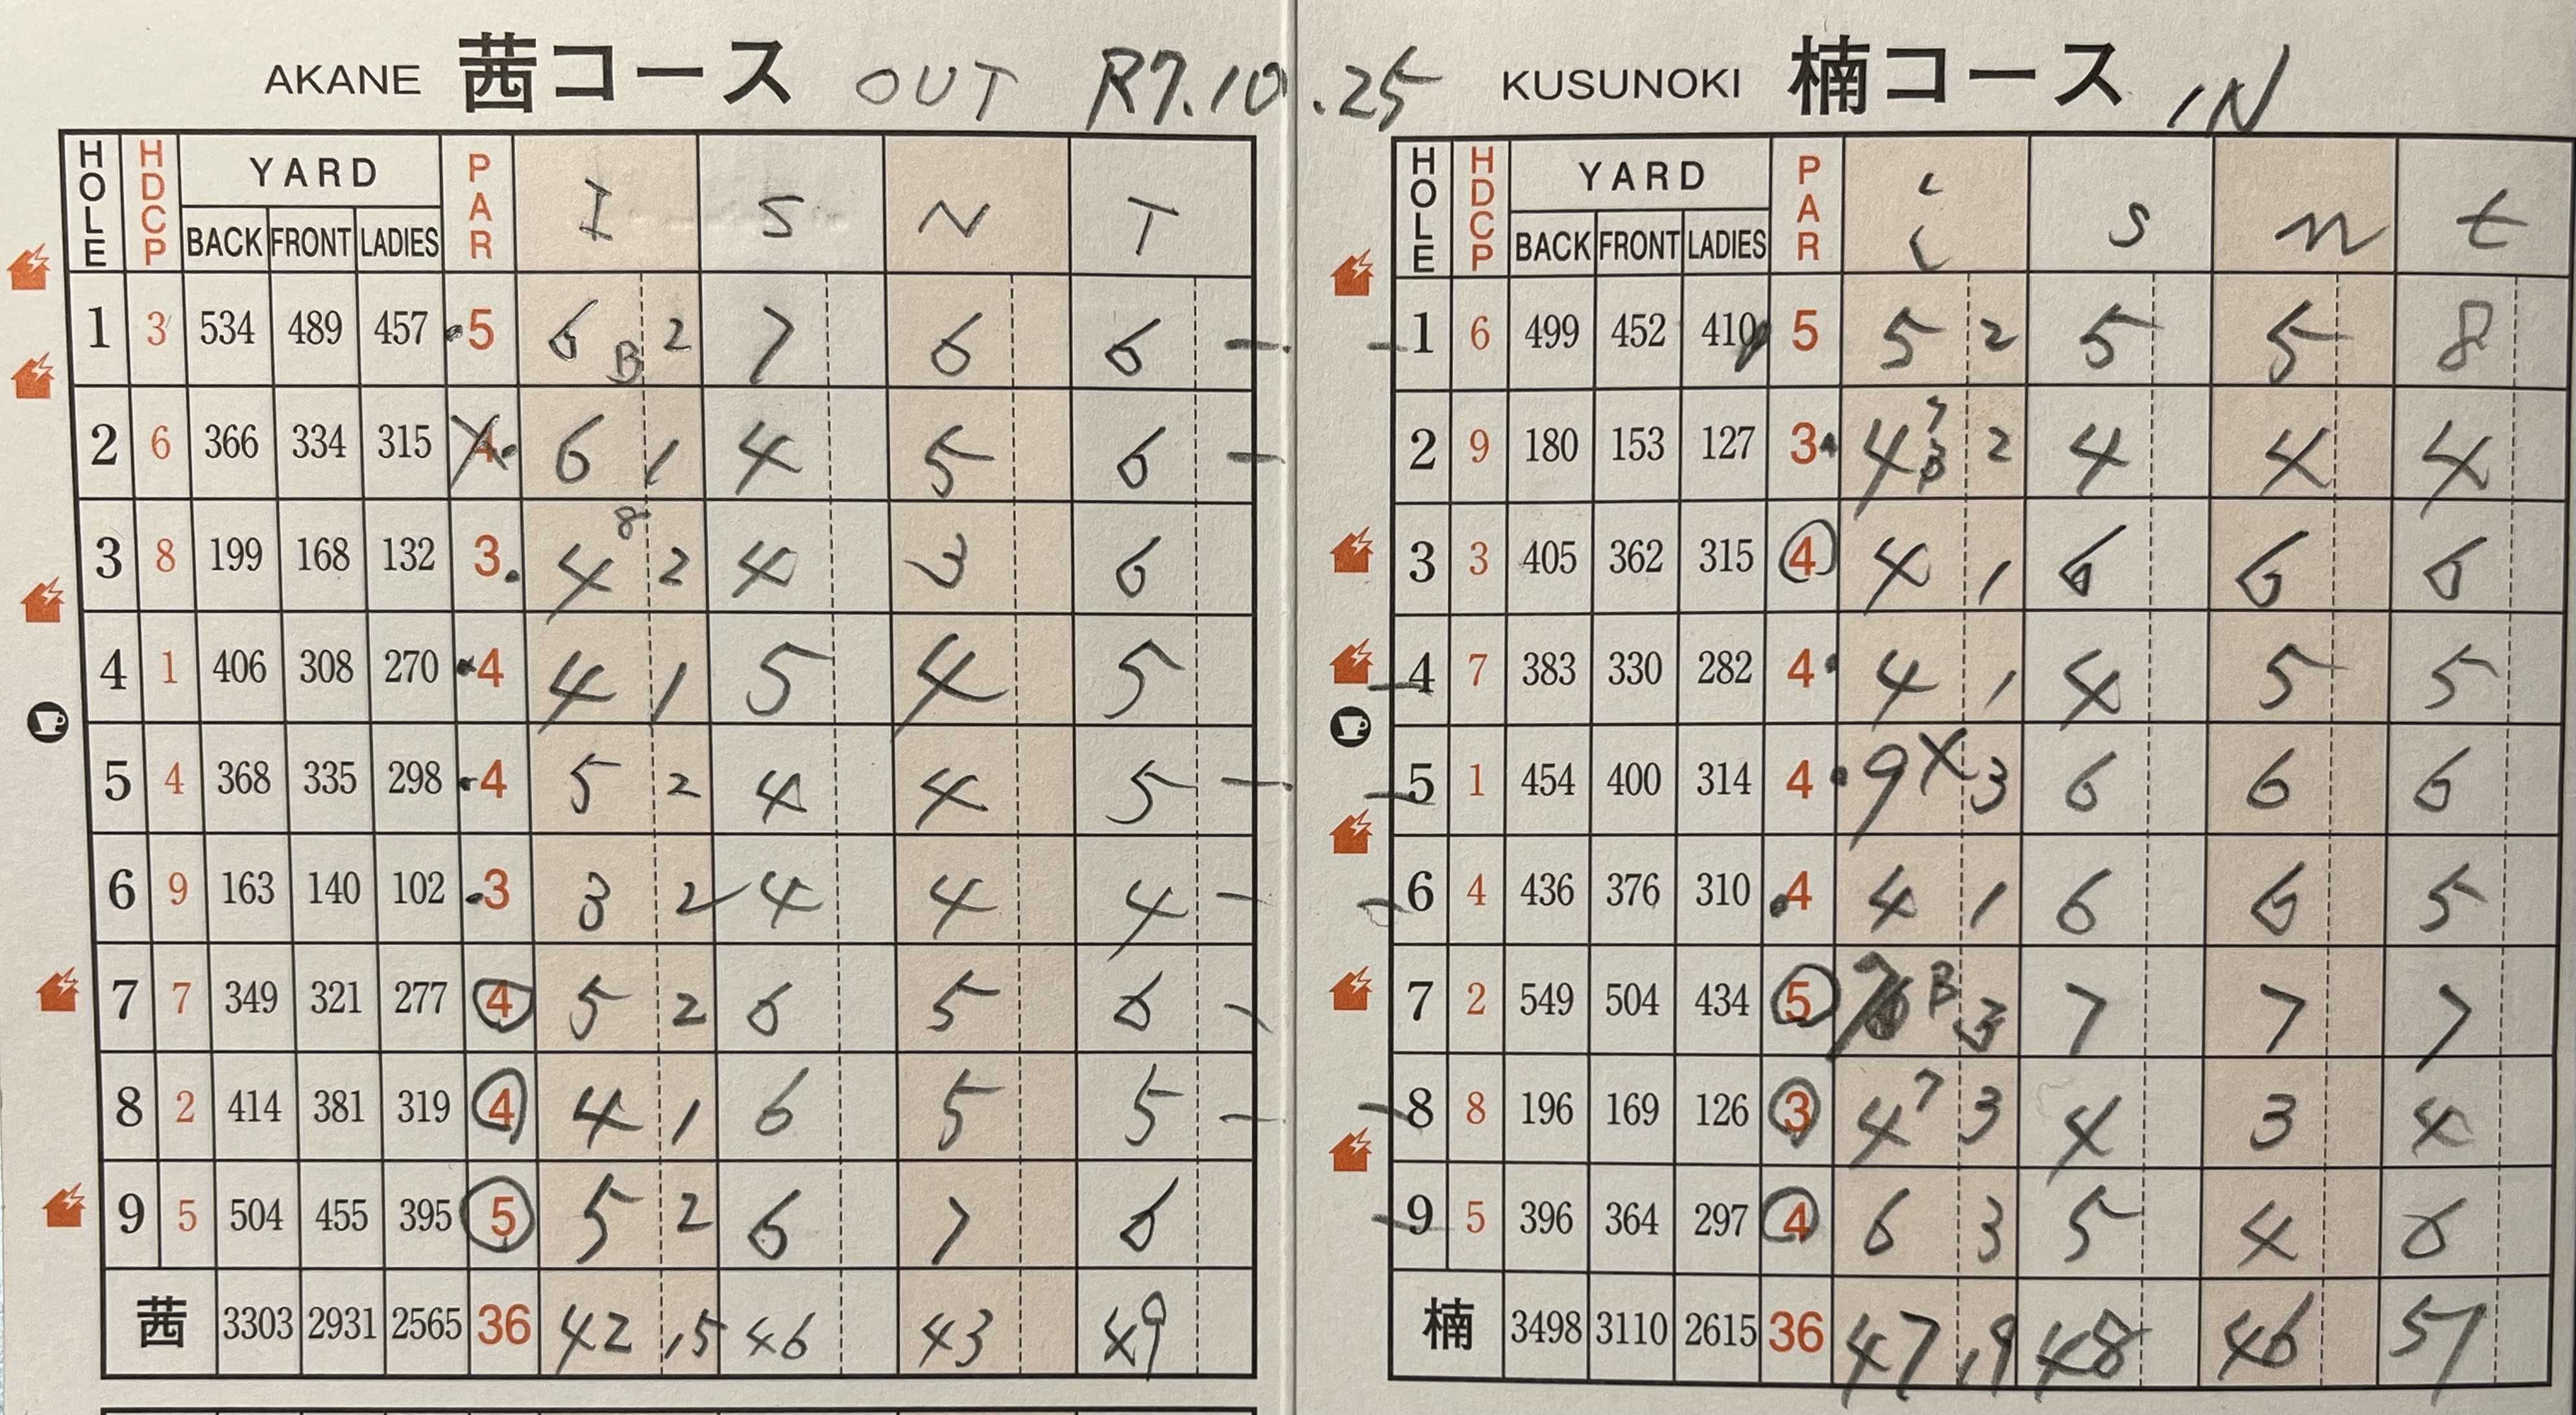 AKANE 茜コース OUT R7.10.25
HOLE HDCP YARD PAR I S N T
BACK FRONT LADIES
1 3 534 489 457 5 6 B 2 7 6 6
2 6 366 334 315 4 6 1 4 5 6
3 8 199 168 132 3 4 8 2 4 3 6
4 1 406 308 270 4 4 1 5 4 5
5 4 368 335 298 4 5 2 4 4 5
6 9 163 140 102 3 3 2 4 4 4
7 7 349 321 277 4 5 2 6 5 6
8 2 414 381 319 4 4 1 6 5 5
9 5 504 455 395 5 5 2 6 7 6
茜 3303 2931 2565 36 42 15 46 43 49
KUSUNOKI 楠コース IN
HOLE HDCP YARD PAR i s n t
BACK FRONT LADIES
1 6 499 452 410 5 5 2 5 5 8
2 9 180 153 127 3 4 7 B 2 4 4 4
3 3 405 362 315 4 4 1 6 6 6
4 7 383 330 282 4 4 1 4 5 5
5 1 454 400 314 4 9 X 3 6 6 6
6 4 436 376 310 4 4 1 6 6 5
7 2 549 504 434 5 7 B 3 7 7 7
8 8 196 169 126 3 4 7 3 4 3 4
9 5 396 364 297 4 6 3 5 4 6
楠 3498 3110 2615 36 47 19 48 46 51